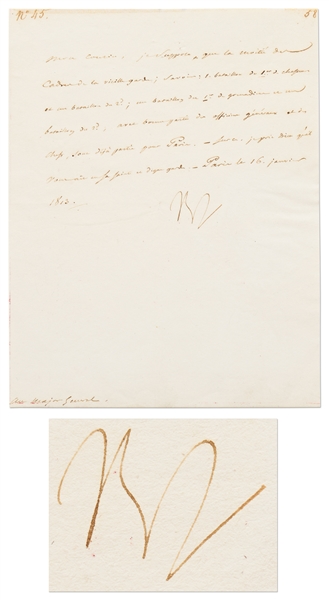 N° 45.
58
Mon Cousin, je suppose que la moitié des
Cadres de la vieille garde; savoir: 1 bataillon du 1er de chasseurs
et un bataillon du 2e; un bataillon du 1er de grenadiers et un
bataillon du 2e, avec bonne partie des officiers généraux et du
sont déjà partis pour Paris.
Sur ce, je prie Dieu qu'il
vous ait en sa sainte et digne garde. Paris le 16 janvier
1813.
Au major général.